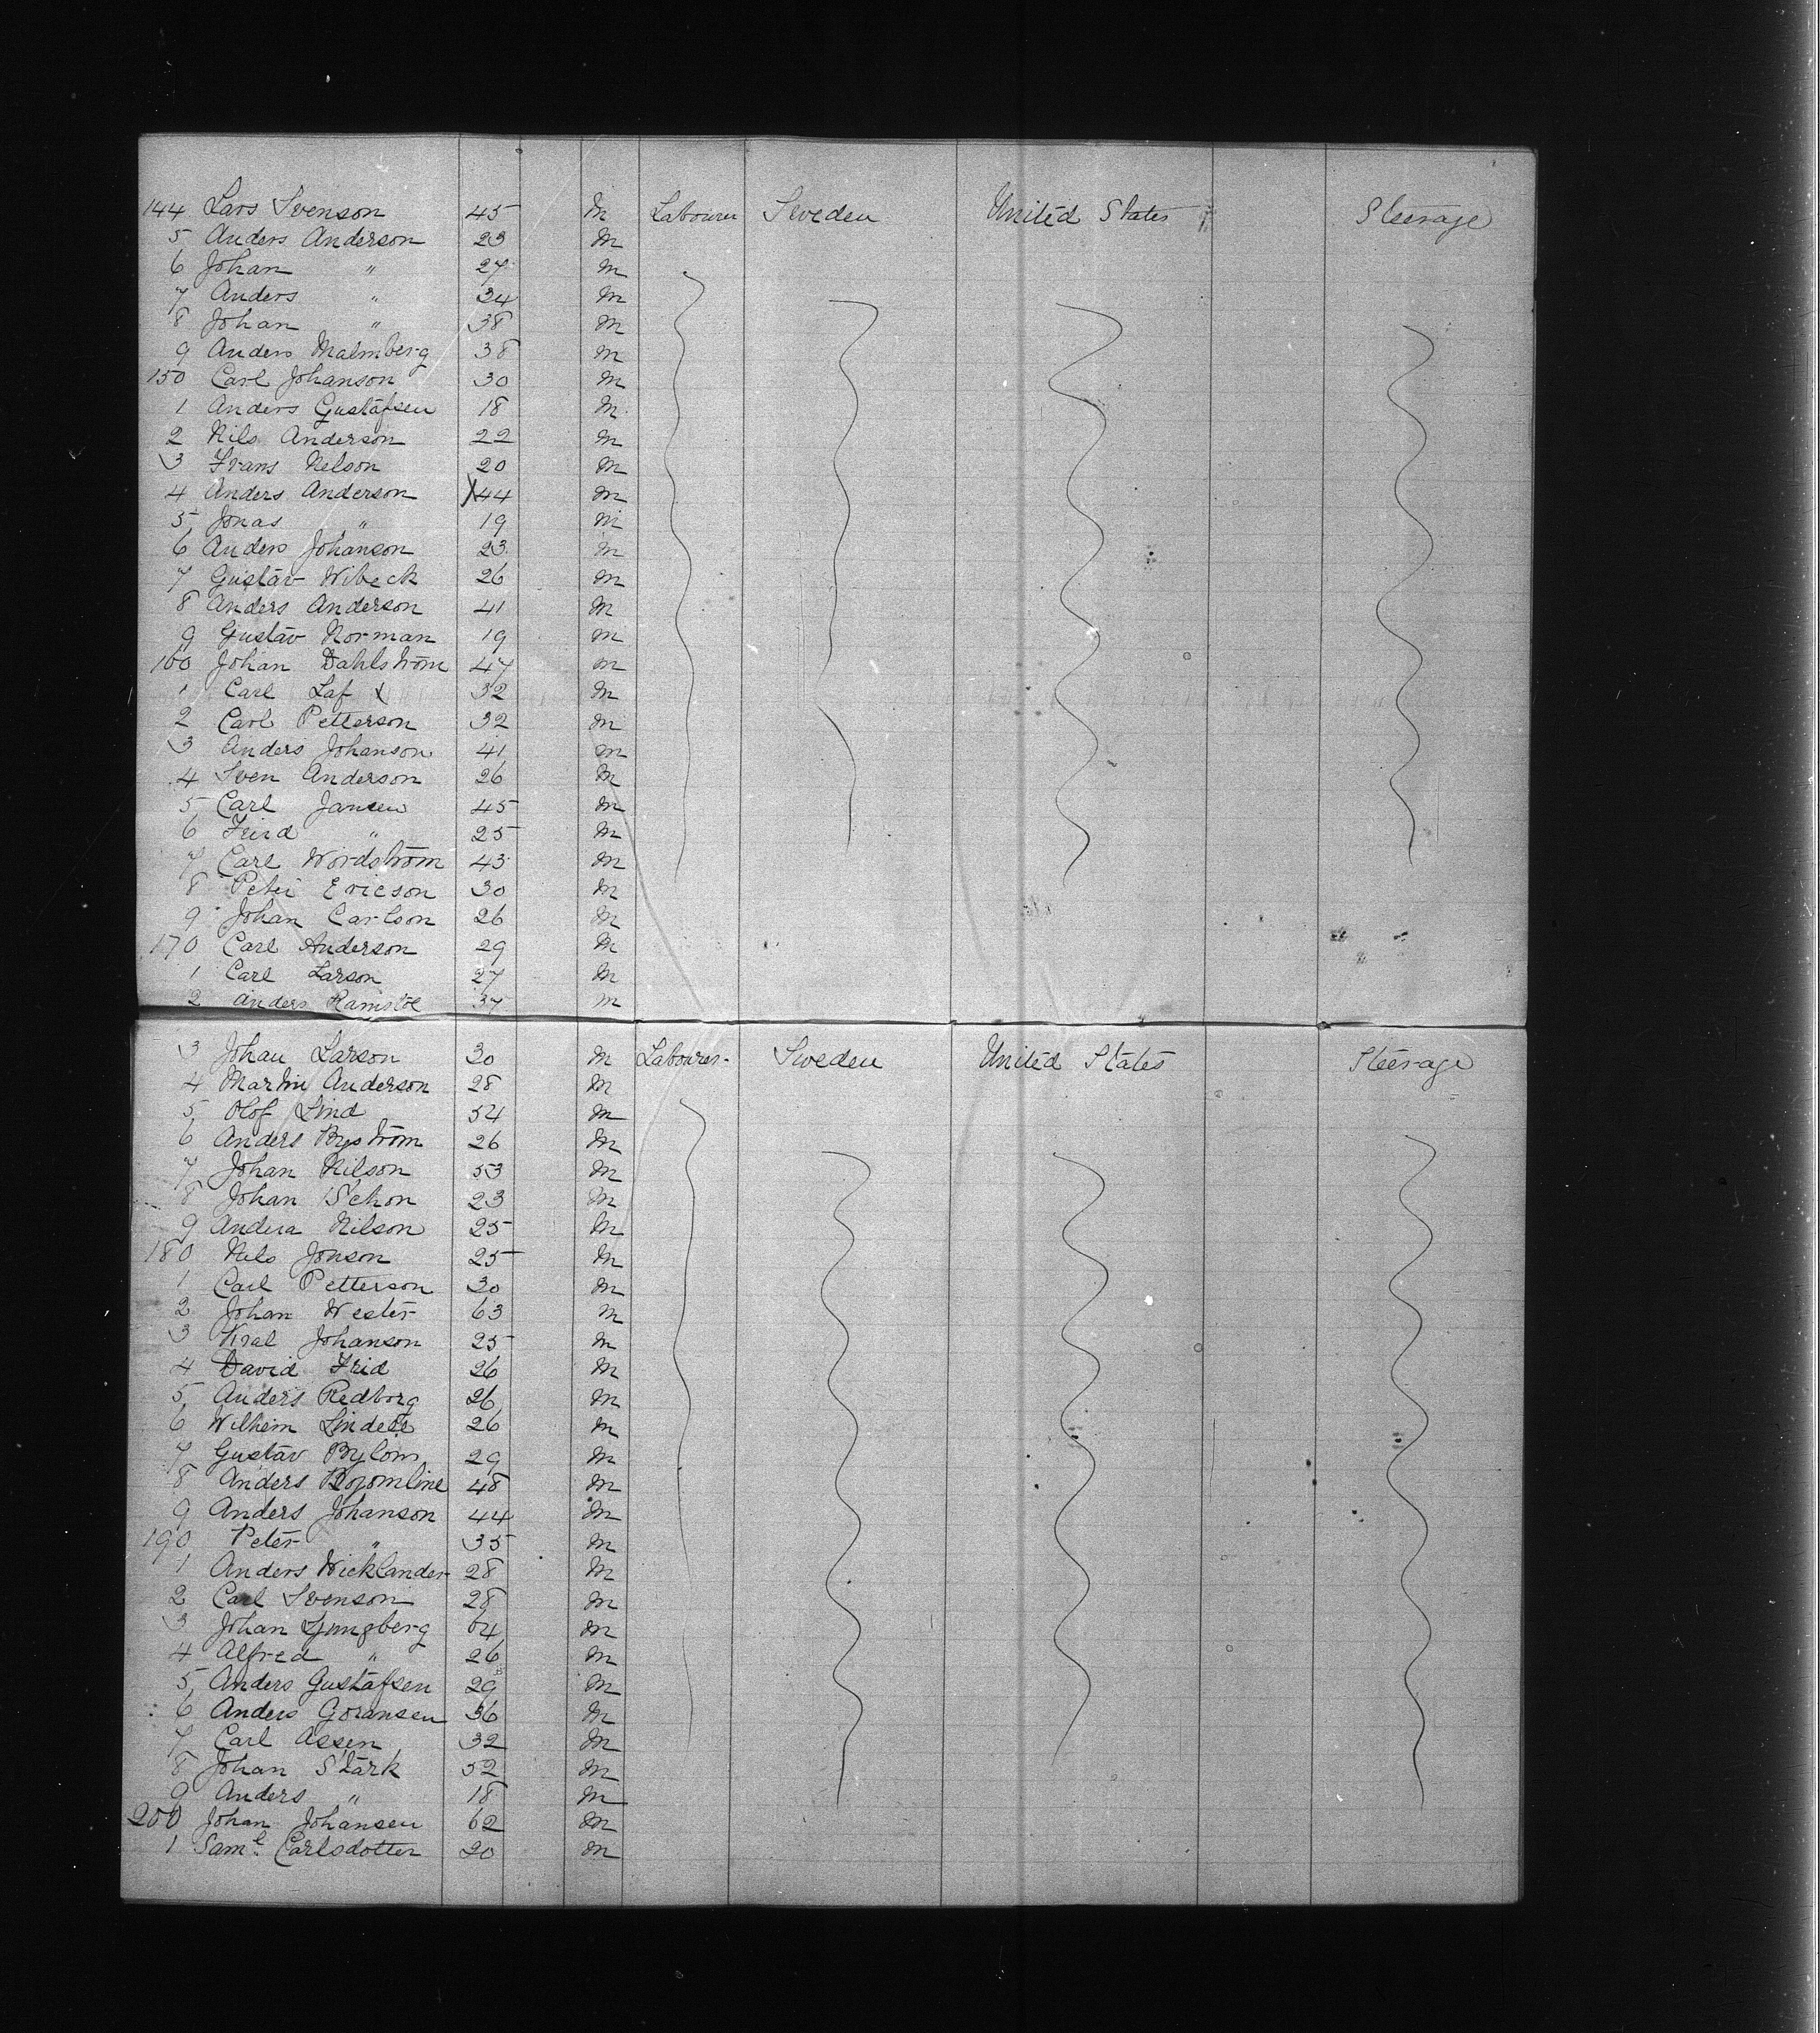 144 Lars Svenson 45 M Labourer Sweden United States Steerage
5 Anders Anderson 23 M
6 Johan " 27 M
7 Anders " 34 M
8 Johan " 38 M
9 Anders Malmberg 38 M
150 Carl Johanson 30 M
1 Anders Gustafsen 18 M
2 Nils Anderson 22 M
3 Frans Nelson 20 M
4 Anders Anderson 44 M
5 Jonas " 19 M
6 Anders Johanson 23 M
7 Gustav Wibeck 26 M
8 Anders Anderson 41 M
9 Gustav Norman 19 M
160 Johan Dahlström 47 M
1 Carl Laf 32 M
2 Carl Petterson 32 M
3 Anders Johanson 41 M
4 Sven Anderson 26 M
5 Carl Jansen 45 M
6 Frid " 25 M
7 Carl Wordström 43 M
8 Peter Ericson 30 M
9 Johan Carlson 26 M
170 Carl Anderson 29 M
1 Carl Larson 27 M
2 Anders 37 M
3 Johan Larson 30 M Labourer Sweden United States Steerage
4 Martin Anderson 28 M
5 Olof Lind 54 M
6 Anders Byström 26 M
7 Johan Nilson 53 M
8 Johan Schon 23 M
9 Andera Nilson 25 M
180 Nils Jonson 25 M
1 Carl Petterson 30 M
2 Johan Wester 63 M
3 Kral Johanson 25 M
4 David Frid 26 M
5 Anders Redborg 26 M
6 Wilhem Lindell 26 M
7 Gustav Bylom 29 M
8 Anders 48 M
9 Anders Johanson 44 M
190 Peter " 35 M
1 Anders Wicklander 28 M
2 Carl Svenson 28 M
3 Johan Ljungberg 64 M
4 Alfred " 26 M
5 Anders Gustafsen 29 M
6 Anders Goransen 36 M
7 Carl Assen 32 M
8 Johan Stark 52 M
9 Anders " 18 M
200 Johan Johansen 62 M
1 Saml. Carlsdotter 20 M